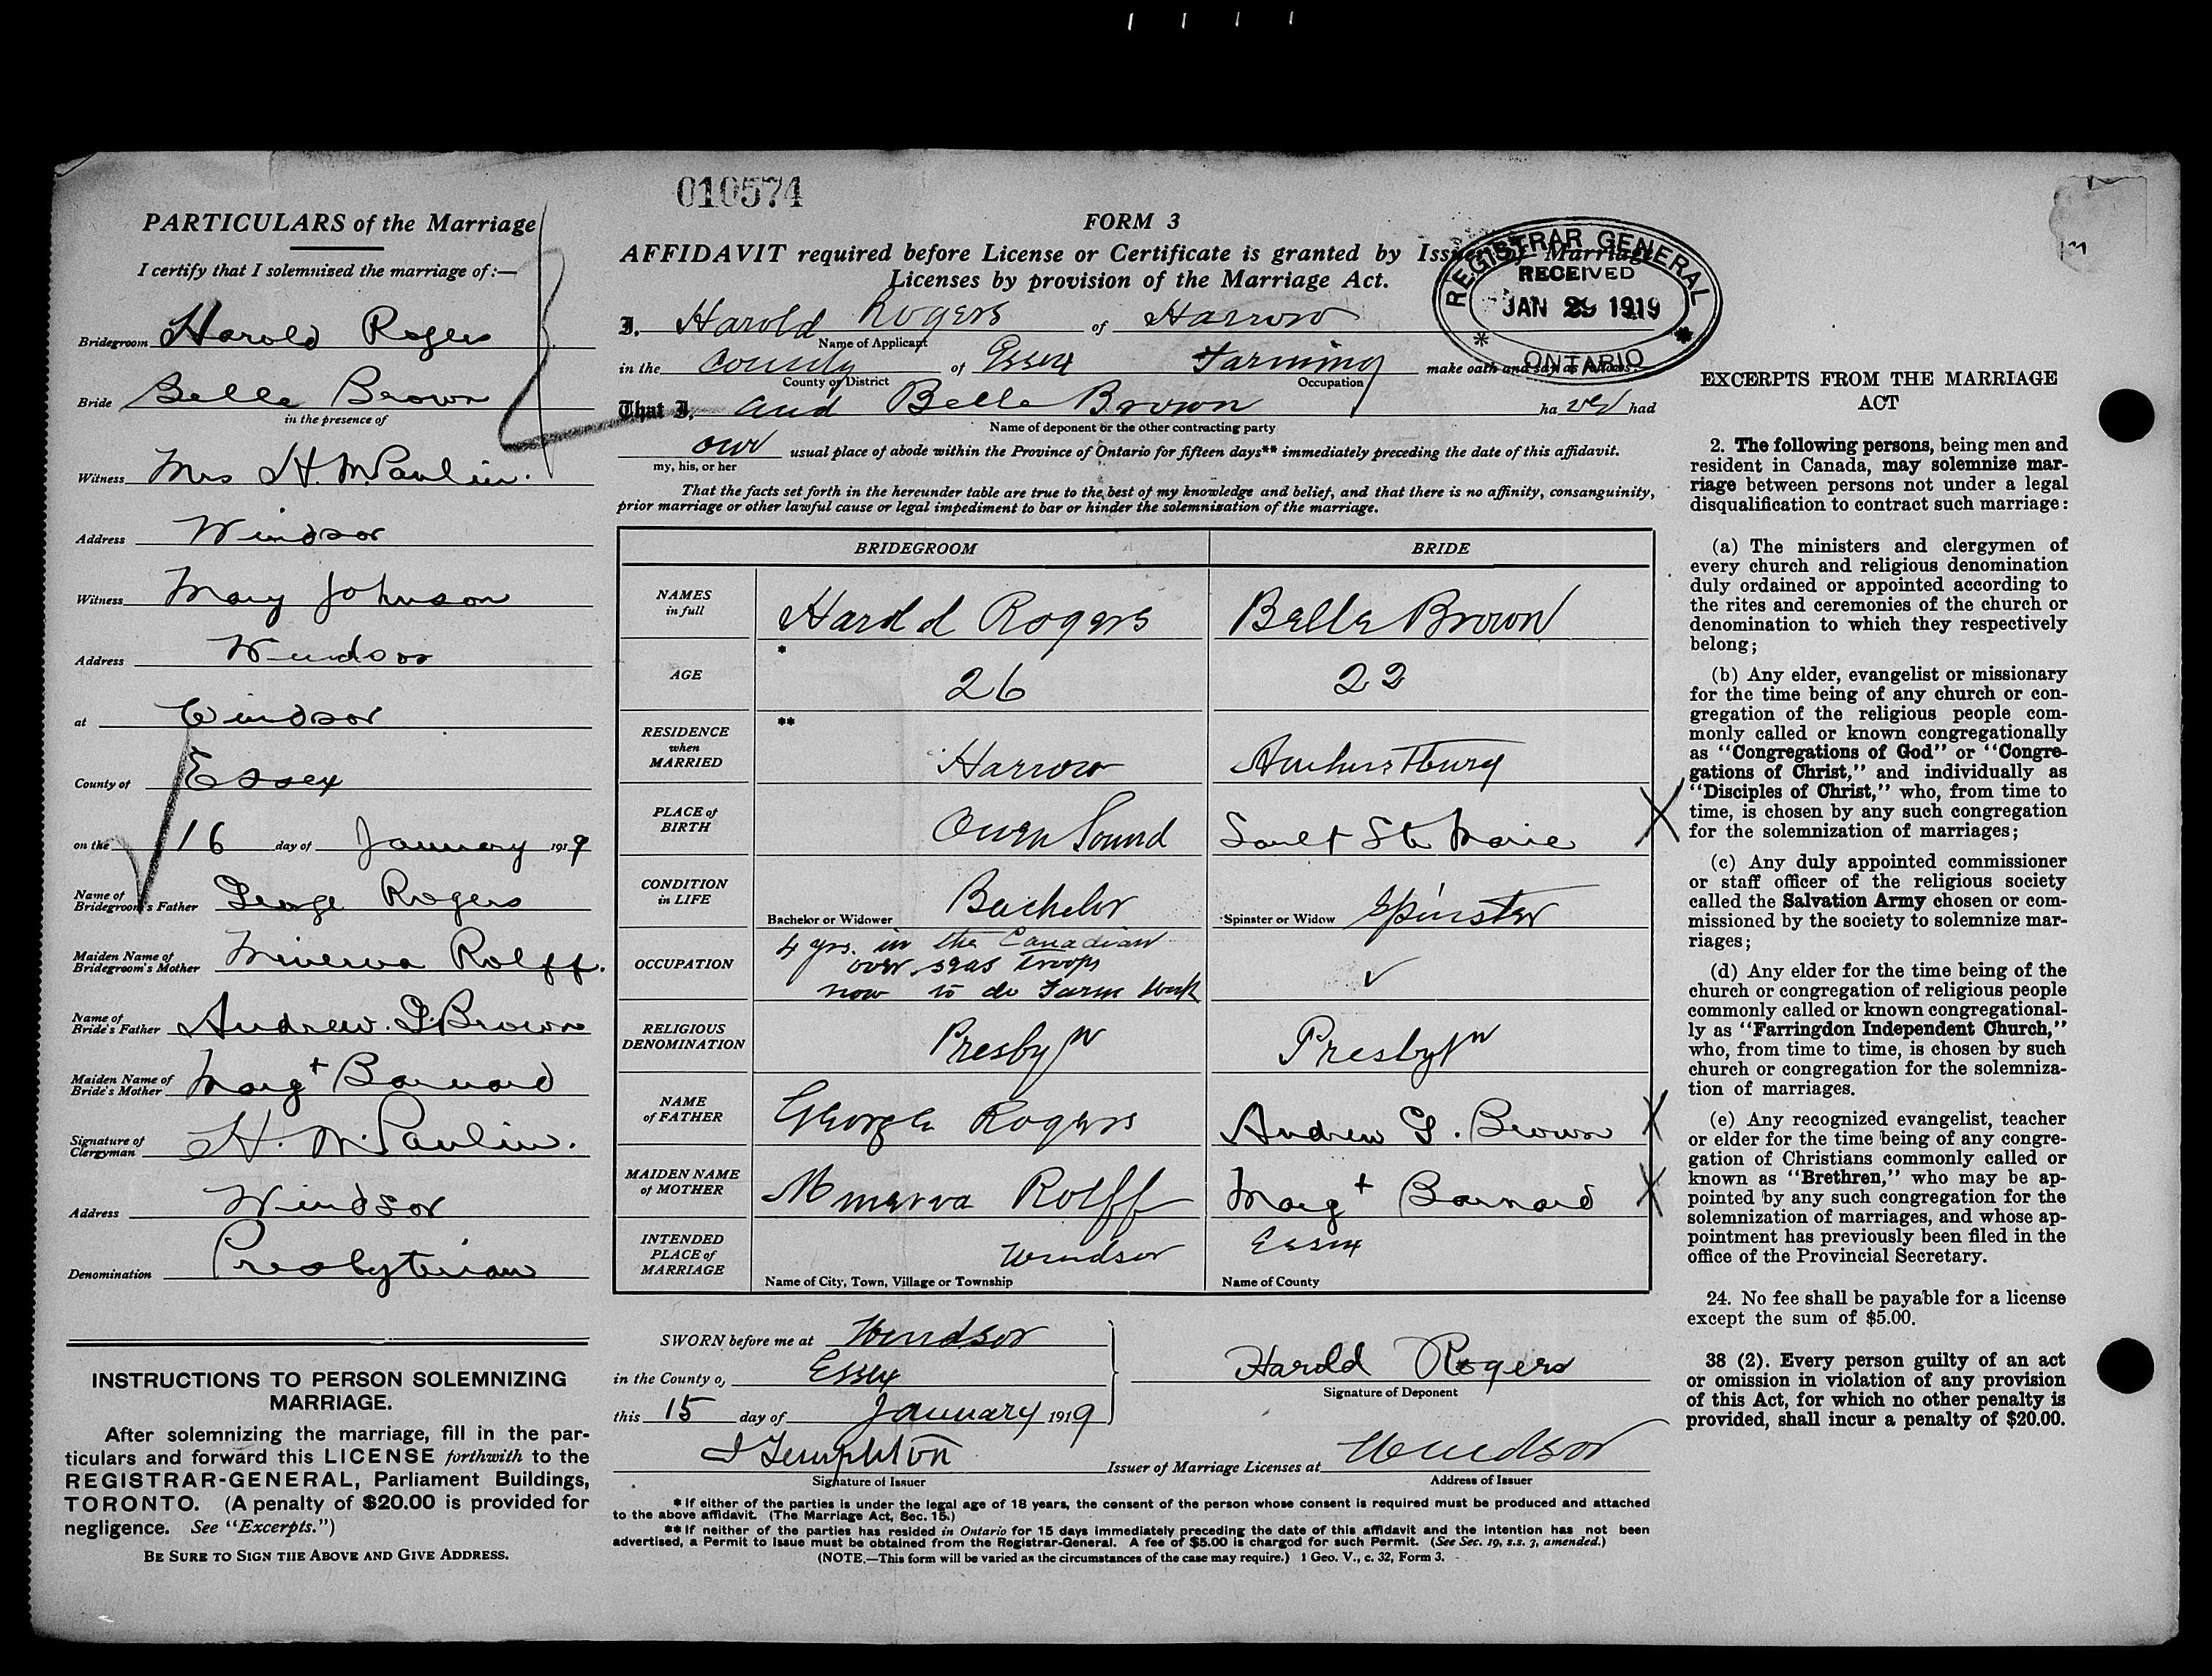 010574
PARTICULARS of the Marriage
I certify that I solemnized the marriage of:—
Bridegroom Harold Rogers
Bride Belle Brown
in the presence of
Witness Mrs H. M. Paulin.
Address Windsor
Witness Mary Johnson
Address Windsor
at Windsor
County of Essex
on the 16 day of January 1919
Name of Bridegroom's Father George Rogers
Maiden Name of Bridegroom's Mother Minerva Rolff.
Name of Bride's Father Andrew. G. Brown
Maiden Name of Bride's Mother Margt Barnard
Signature of Clergyman H. M. Paulin.
Address Windsor
Denomination Presbyterian
INSTRUCTIONS TO PERSON SOLEMNIZING
MARRIAGE.
After solemnizing the marriage, fill in the par-
ticulars and forward this LICENSE forthwith to the
REGISTRAR-GENERAL, Parliament Buildings,
TORONTO. (A penalty of $20.00 is provided for
negligence. See "Excerpts.")
BE SURE TO SIGN THE ABOVE AND GIVE ADDRESS.
FORM 3
AFFIDAVIT required before License or Certificate is granted by Issuer of Marriage
Licenses by provision of the Marriage Act.
REGISTRAR GENERAL
RECEIVED
JAN 29 1919
* ONTARIO *
I, Harold Rogers of Harrow
Name of Applicant
in the County of Essex Farming make oath and say as follows:
County or District Occupation
That I, and Belle Brown have had
Name of deponent or the other contracting party
our usual place of abode within the Province of Ontario for fifteen days** immediately preceding the date of this affidavit.
my, his, or her
That the facts set forth in the hereunder table are true to the best of my knowledge and belief, and that there is no affinity, consanguinity,
prior marriage or other lawful cause or legal impediment to bar or hinder the solemnization of the marriage.
BRIDEGROOM BRIDE
NAMES in full Harold Rogers Belle Brown
AGE * 26 22
RESIDENCE when MARRIED ** Harrow Amherstburg
PLACE of BIRTH Owen Sound Sault Ste Marie X
CONDITION in LIFE Bachelor or Widower Bachelor Spinster or Widow Spinster
OCCUPATION 4 yrs. in the Canadian
over seas troops
now to do Farm Work
RELIGIOUS DENOMINATION Presbyn Presbyn
NAME of FATHER George Rogers Andrew G. Brown X
MAIDEN NAME of MOTHER Minerva Rolff Margt Barnard X
INTENDED PLACE of MARRIAGE Windsor Essex
Name of City, Town, Village or Township Name of County
SWORN before me at Windsor
in the County of Essex
this 15 day of January 1919
Harold Rogers
Signature of Deponent
J Templeton
Signature of Issuer
Issuer of Marriage Licenses at Windsor
Address of Issuer
* If either of the parties is under the legal age of 18 years, the consent of the person whose consent is required must be produced and attached
to the above affidavit. (The Marriage Act, Sec. 15.)
** If neither of the parties has resided in Ontario for 15 days immediately preceding the date of this affidavit and the intention has not been
advertised, a Permit to issue must be obtained from the Registrar-General. A fee of $5.00 is charged for such Permit. (See Sec. 19, s.s. 3, amended.)
(NOTE.—This form will be varied as the circumstances of the case may require.) 1 Geo. V., c. 32, Form 3.
EXCERPTS FROM THE MARRIAGE
ACT
2. The following persons, being men and
resident in Canada, may solemnize mar-
riage between persons not under a legal
disqualification to contract such marriage:
(a) The ministers and clergymen of
every church and religious denomination
duly ordained or appointed according to
the rites and ceremonies of the church or
denomination to which they respectively
belong;
(b) Any elder, evangelist or missionary
for the time being of any church or con-
gregation of the religious people com-
monly called or known congregationally
as "Congregations of God" or "Congre-
gations of Christ," and individually as
"Disciples of Christ," who, from time to
time, is chosen by any such congregation
for the solemnization of marriages;
(c) Any duly appointed commissioner
or staff officer of the religious society
called the Salvation Army chosen or com-
missioned by the society to solemnize mar-
riages;
(d) Any elder for the time being of the
church or congregation of religious people
commonly called or known congregational-
ly as "Farringdon Independent Church,"
who, from time to time, is chosen by such
church or congregation for the solemniza-
tion of marriages.
(e) Any recognized evangelist, teacher
or elder for the time being of any congre-
gation of Christians commonly called or
known as "Brethren," who may be ap-
pointed by any such congregation for the
solemnization of marriages, and whose ap-
pointment has previously been filed in the
office of the Provincial Secretary.
24. No fee shall be payable for a license
except the sum of $5.00.
38 (2). Every person guilty of an act
or omission in violation of any provision
of this Act, for which no other penalty is
provided, shall incur a penalty of $20.00.